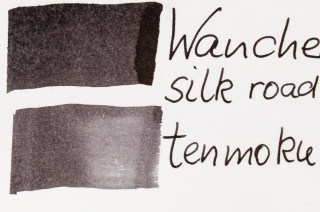 Wanche
silk road
tenmoku